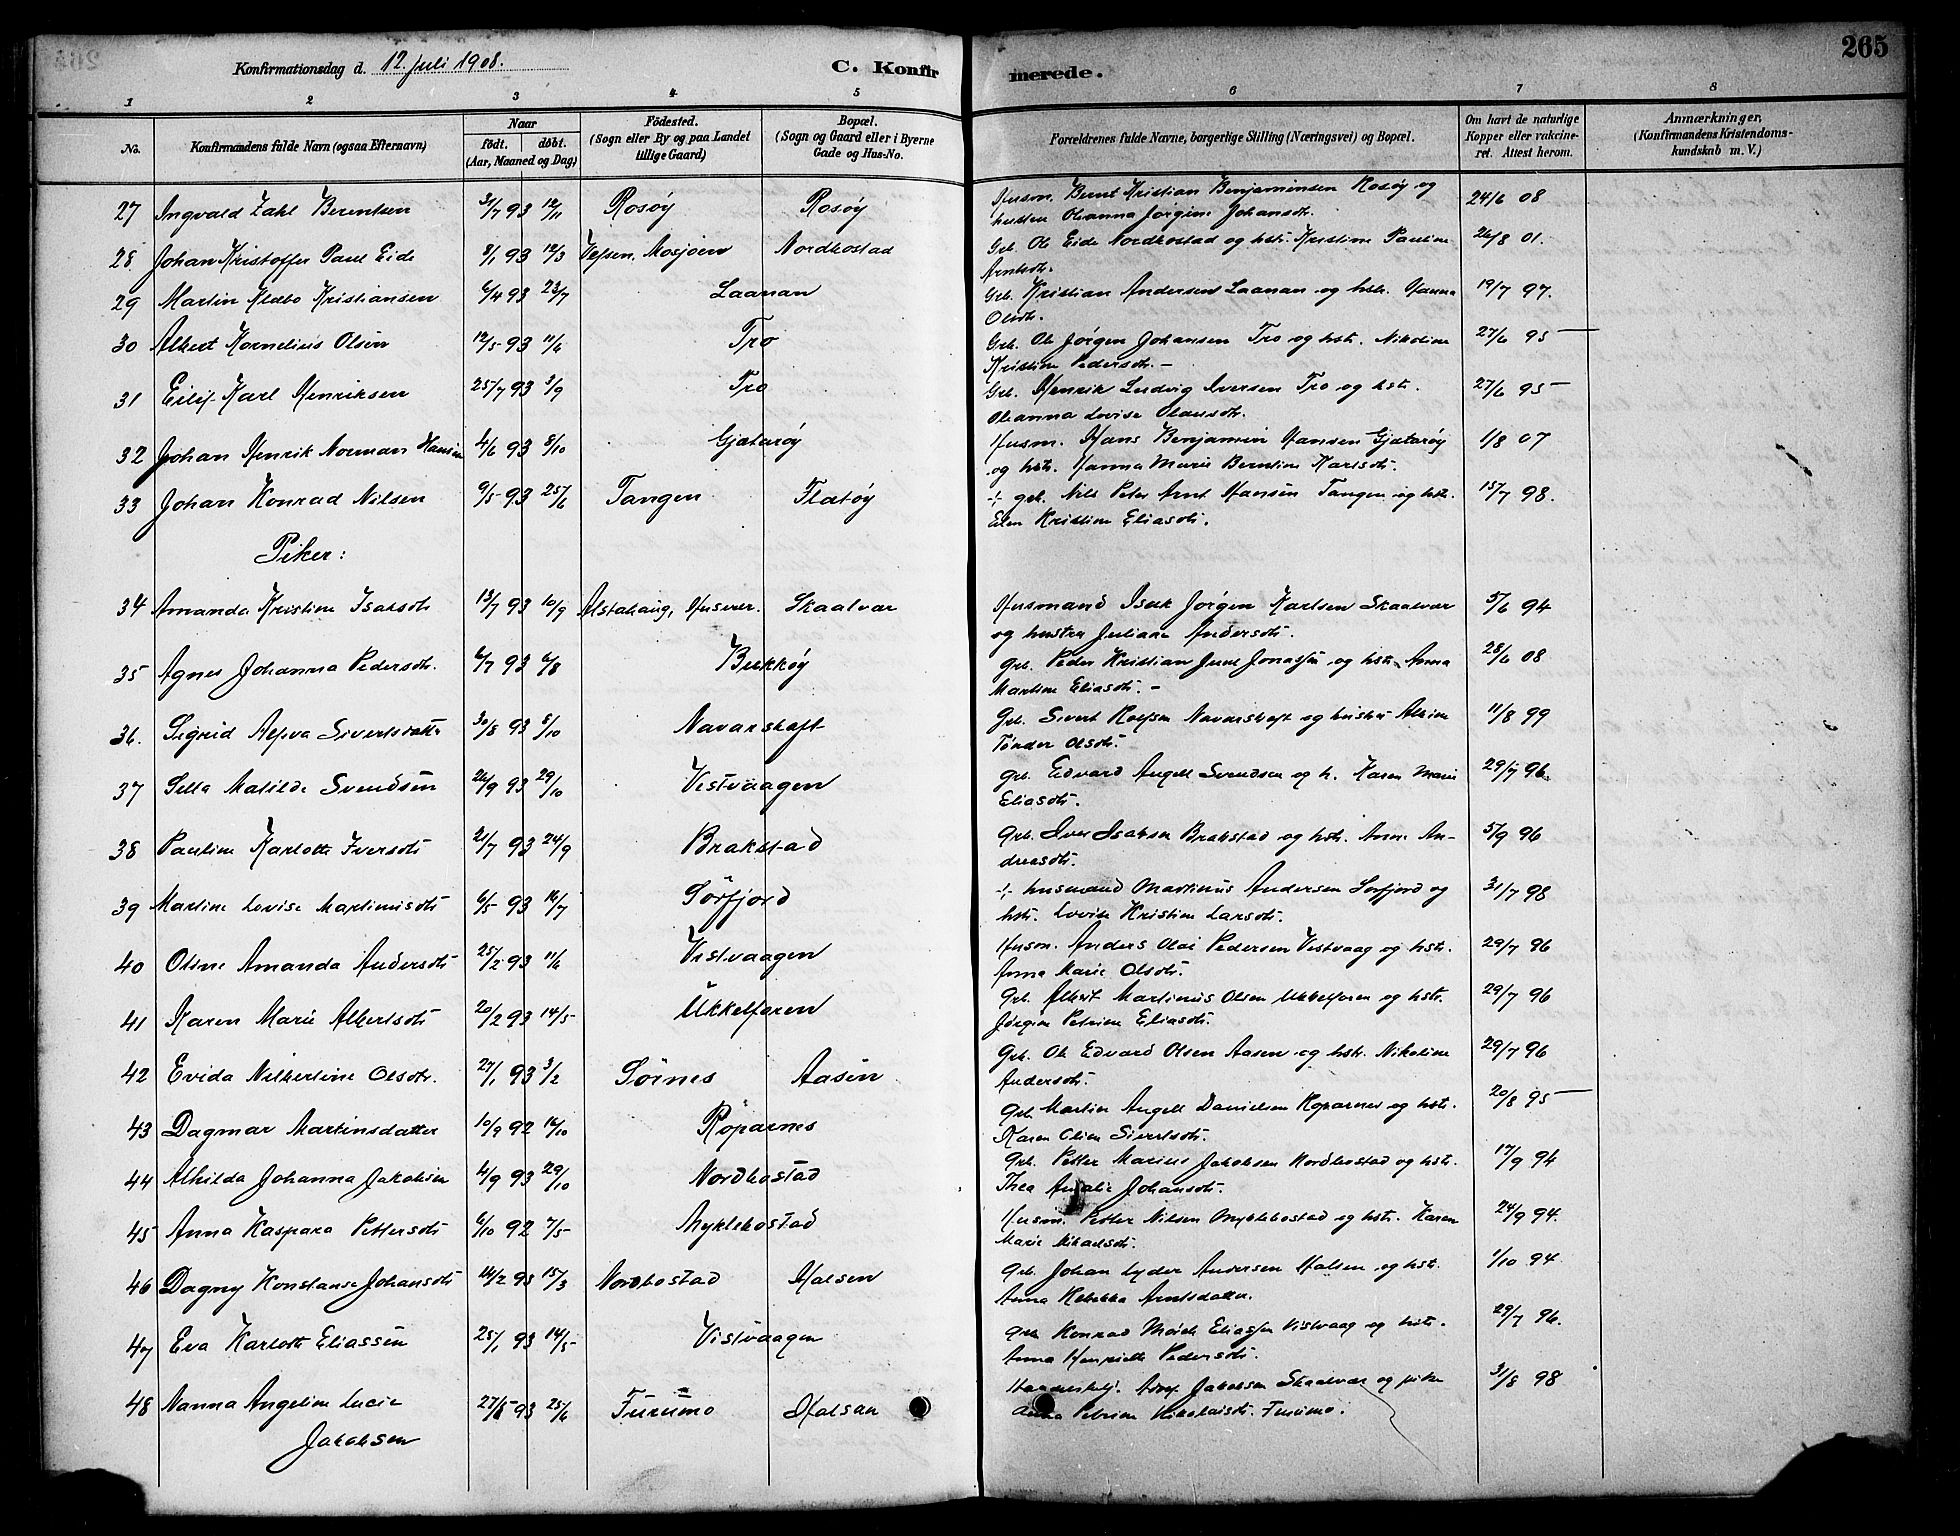 265
Konfirmationsdag d. 12. juli 1908.
C. Konfirmerede.
1 2 3 4 5 6 7 8
No. Konfirmandens fulde Navn (ogsaa Efternavn) Naar født. døbt. (Aar, Maaned og Dag) Fødested. (Sogn eller By og paa Landet tillige Gaard) Bopæl. (Sogn og Gaard eller i Byerne Gade og Hus-No. Forældrenes fulde Navne, borgerlige Stilling (Næringsvei) og Bopæl. Om havt de naturlige Kopper eller vakcineret. Attest herom. Anmærkninger. (Konfirmandens Kristendomskundskab m. V.)
27 Ingvald Zahl Berentsen 31/7 93 12/11 Rosøy Rosøy Husm. Bernt Kristian Benjaminsen Rosøy og
hustru Oleanna Jørgine Johansdtr. 24/6 08
28 Johan Kristoffer Paul Eide 8/1 93 12/3 Vefsen, Mosjøen Nordbostad Grb. Ole Eide Nordbostad og hstr. Kristine Pauline
Arntsdtr. 26/8 01.
29 Martin Klæbo Kristiansen 6/4 93 23/7 Laanan Grb. Kristian Andersen Laanan og hstr. Hanna
Olsdtr. 19/7 97.
30 Albert Kornelius Olsen 12/5 93 11/6 Tro Grb. Ole Jørgen Johansen Tro og hstr. Nikoline
Kristine Pedersdtr. – 27/6 95
31 Eilif Karl Henriksen 25/7 93 3/9 Tro Grb. Henrik Ludvig Iversen Tro og hstr.
Oleanna Lovise Olausdtr. 27/6 95
32 Johan Henrik Norman Hansen 4/6 93 8/10 Gjæterøy Husm. Hans Benjamin Hansen Gjæterøy
og hstr. Hanna Marie Berntine Karlsdtr. 1/8 07
33 Johan Konrad Nilsen 9/5 93 25/6 Tangen Flatøy -:- grb. Nils Peter Arnt Hansen Tangen og hstr.
Elen Kristine Eliasdtr. 15/7 98.
Piker:
34 Amanda Kristine Isaksdtr 13/7 93 10/9 Alstahaug, Husvær. Skaalvær Husmand Isak Jørgen Karlsen Skaalvær
og hustru Juliane Andersdtr. 5/6 94
35 Agnes Johanna Pedersdtr. 6/7 93 6/8 Bukkøy Grb. Peder Kristian Juul Jonassen og hstr. Anna
Martine Eliasdtr. – 28/6 08
36. Sigrid Sivertsdatter 30/8 93 8/10 Navarskaft Grb. Sivert Rolfsen Navarskaft og hustru
Tønder Olsdtr. 11/8 99
37 Sella Matilde Svendsen 26/9 93 29/10 Vestvaagen Grb. Edvard Angell Svendsen og h. Karen Marie
Eliasdtr. 29/7 96.
38 Pauline Karlotte Iversdtr 21/7 93 24/9 Brakstad Grb. Iver Isaksen Brakstad og hstr. Anne Andreasdtr. 5/9 96
39 Martine Lovise Martinusdtr 6/5 93 16/7 Sørfjord -:- husmand Martinus Andersen Sørfjord og
hstr. Lovise Kristine Larsdtr. 31/7 98
40 Oline Amanda Andersdtr 25/2 93 11/6 Vestvaagen Husm. Anders Olai Pedersen Vestvaag og hstr.
Anna Marie Olsdtr. 29/7 96
41 Karen Marie Albertsdtr 20/2 93 14/5 Ukkelføren Grb. Albert Martinus Olsen Ukkelføren og hstr.
Jørgine Petrine Eliasdtr. 29/7 96
42 Evida Nilbertine Olsdtr. 27/1 93 3/2 Sørnes Aasen Grb. Ole Edvard Olsen Aasen og hstr. Nikoline
Andersdtr. 29/7 96
43 Dagmar Martinsdatter 10/9 92 16/10 Røparnes Grb. Martin Angell Danielsen Røparnes og hstr.
Karen Oline Sivertsdtr. 20/8 95
44 Alhilda Johanna Jakobsen 4/9 93 29/10 Nordbostad Grb. Petter Marius Jakobsen Nordbostad og hstr.
Thea Amalie Johansdtr. 17/9 94
45 Anna Kaspara Pettersdtr 6/10 92 7/5 Myklebostad Husm. Petter Nilsen Myklebostad og hstr. Karen
Marie Mikaelsdtr. 24/9 94.
46 Dagny Konstanse Johansdtr 14/2 93 15/3 Nordbostad Halsen Grb. Johan Lyder Andersen Halsen og hstr.
Anna Rebekka Arntsdatter. 1/10 94.
47 Eva Karlotte Eliassen 25/1 93 14/5 Vestvaagen Grb Konrad Mørch Eliassen Vestvaag og hstr.
Anna Henriette Pedersdtr. 29/7 96.
48 Nanna Angeline Lucie
Jakobsen 27/5 93 25/6 Furumo Halsan Handelsbetj. Adolf Jakobsen Skaalvær og pike
Anna Petrine Nikolaisdtr. Furumo. 31/8 98